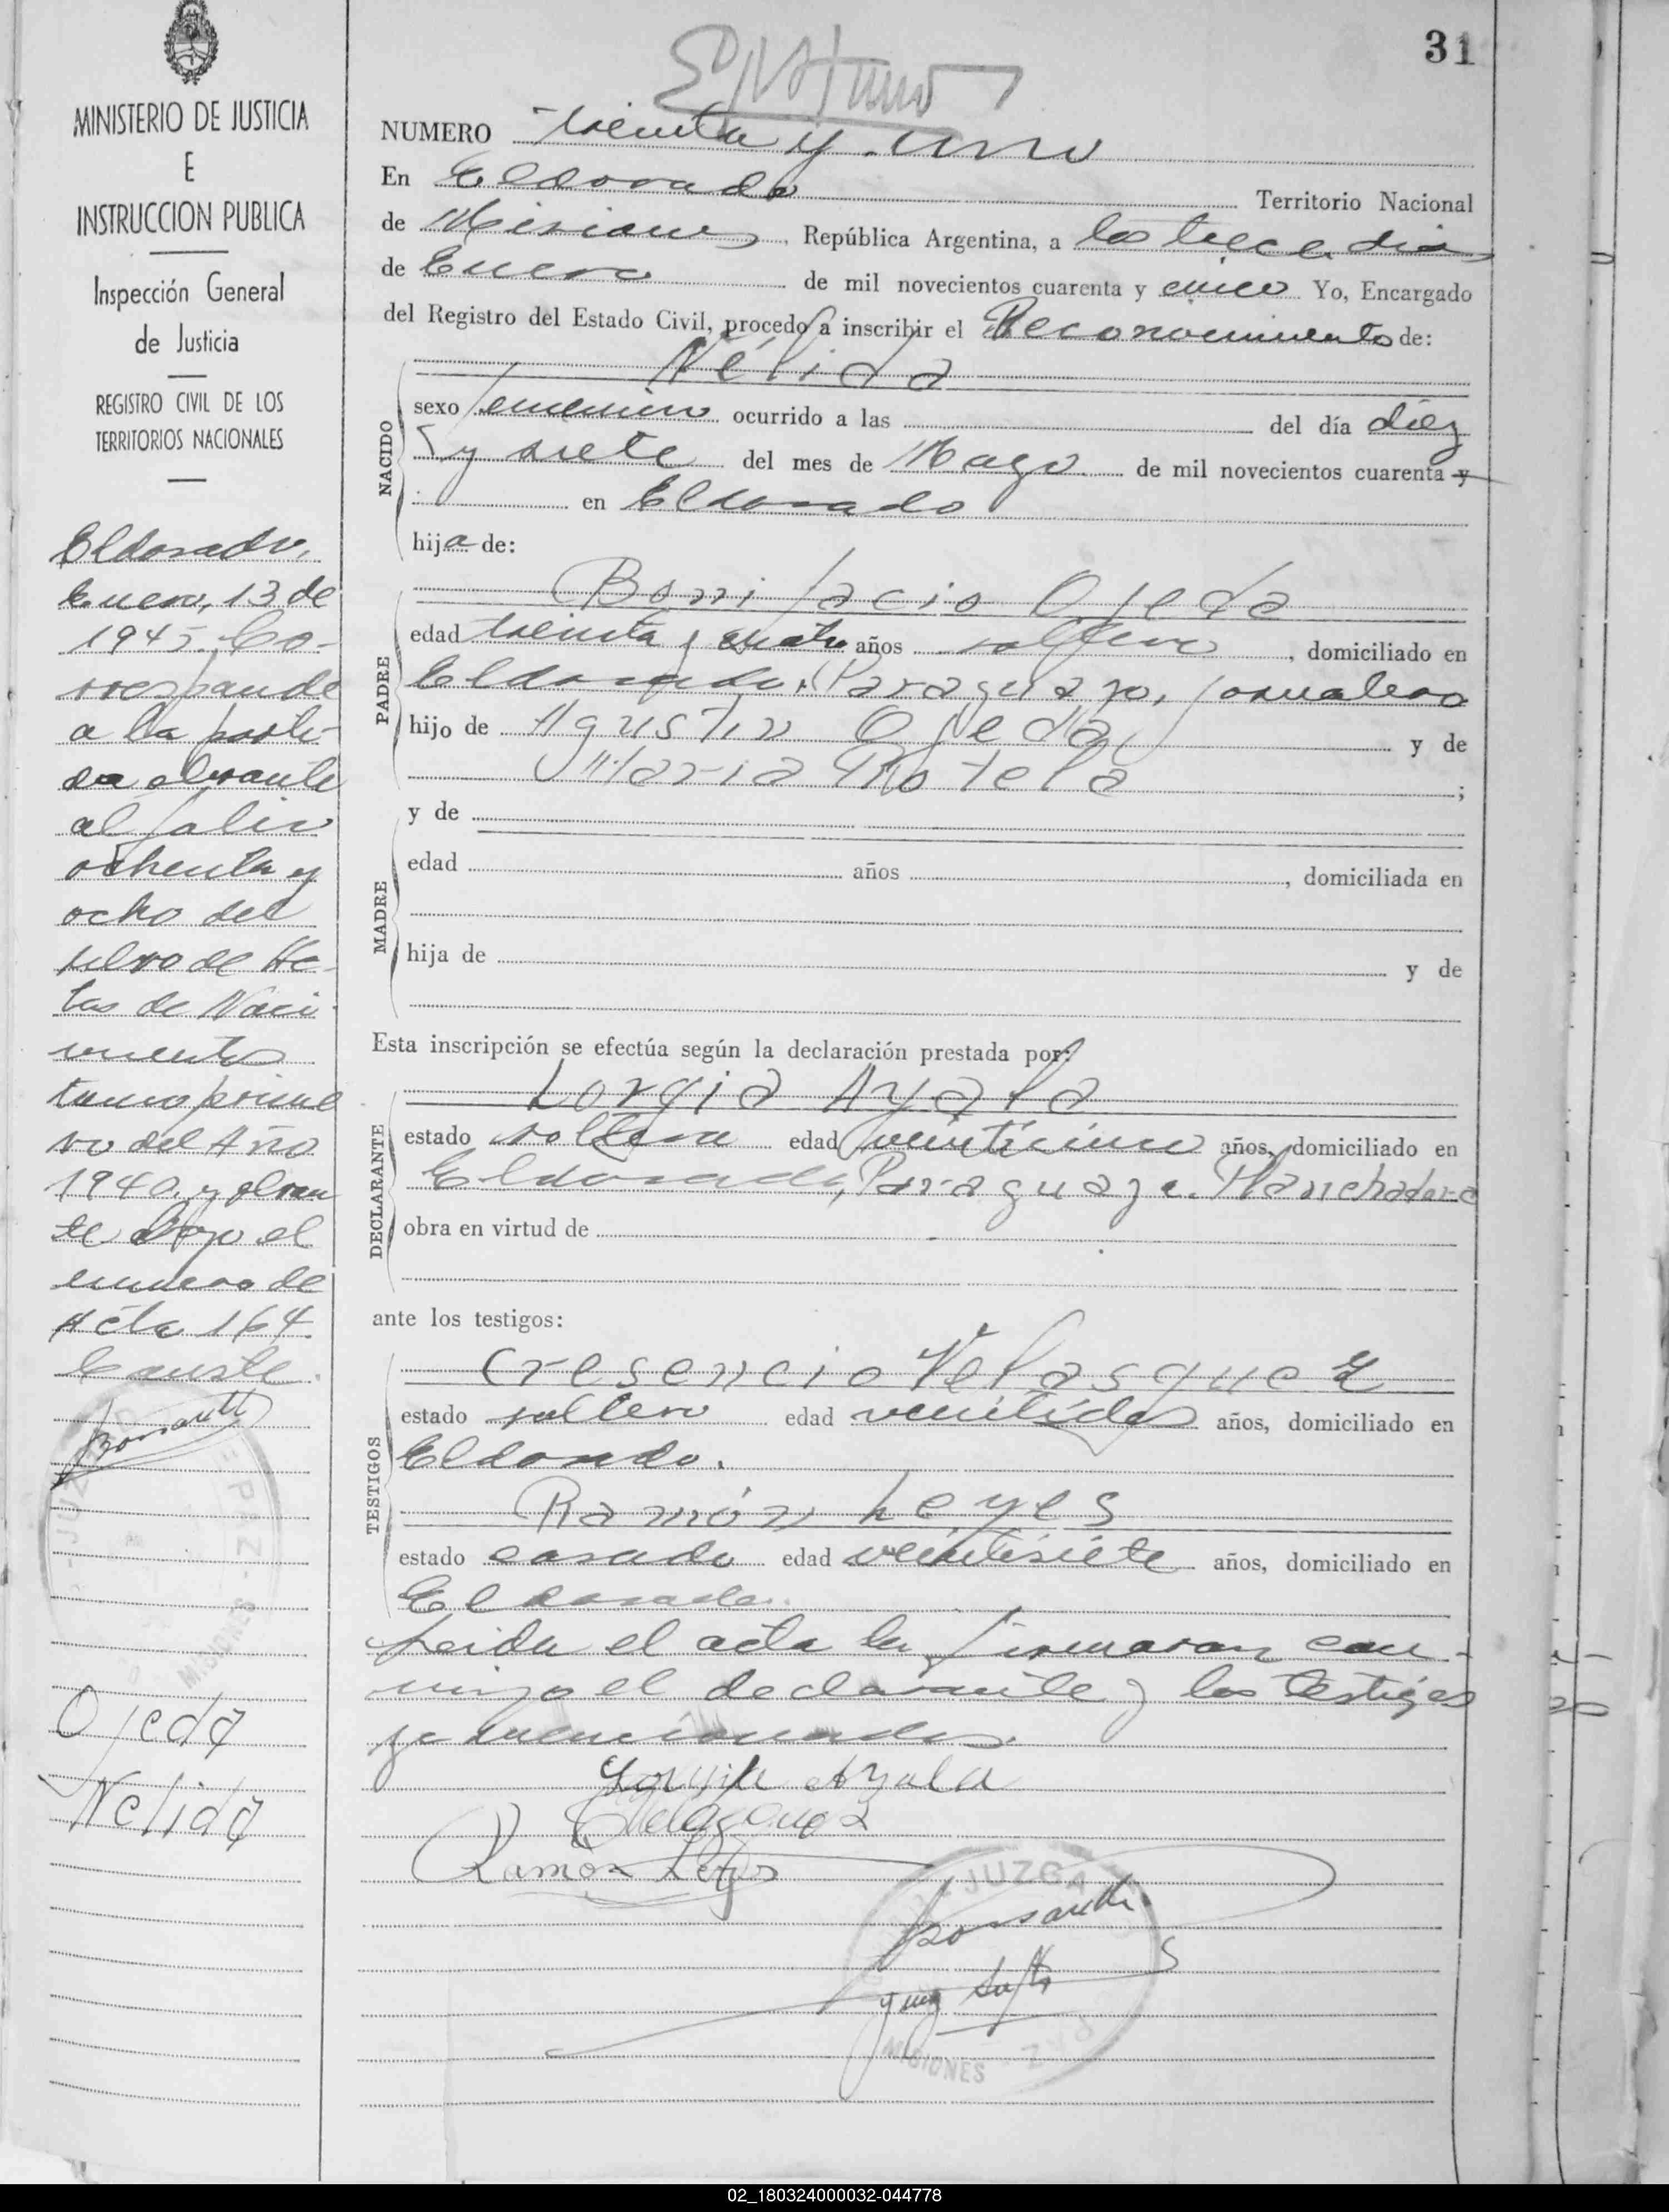 31
MINISTERIO DE JUSTICIA
E
INSTRUCCION PUBLICA
Inspección General
de Justicia
REGISTRO CIVIL DE LOS
TERRITORIOS NACIONALES
Eldorado,
Enero, 13 de
1945. Co-
rresponde
a la parti-
da obrante
al folio
ochenta y
ocho del
libro de Ac-
tas de Naci-
miento
tomo prime
ro del Año
1940. y obran
te bajo el
numero de
Acta 164
Conste.
Ojeda
Nelida
NUMERO treinta y uno
En Eldorado Territorio Nacional
de Misiones, República Argentina, a los trece dias
de Enero de mil novecientos cuarenta y cinco Yo, Encargado
del Registro del Estado Civil, procedo a inscribir el Reconocimiento de:
NACIDO
Nélida
sexo femenino ocurrido a las del día diez
y siete del mes de Mayo de mil novecientos cuarenta y
en Eldorado
hija de:
PADRE
Bonifacio Ojeda
edad treinta y cuatro años soltero, domiciliado en
Eldorado, Paraguayo, jornalero
hijo de Agustin Ojeda y de
Maria Rotela;
MADRE
y de
edad años, domiciliada en
hija de y de
Esta inscripción se efectúa según la declaración prestada por:
DECLARANTE
Lorgia Ayala
estado soltera edad veinticinco años, domiciliado en
Eldorado, Paraguaya. Planchadora
obra en virtud de
ante los testigos:
TESTIGOS
Cresencio Velasquez
estado soltero edad veintidos años, domiciliado en
Eldorado.
Ramón Leyes
estado casado edad veintisiete años, domiciliado en
Eldorado.
Leida el acta la firmaron con-
migo el declarante y los testigos
ya mencionados.
Lorgia Ayala
Velasquez
Ramón Leyes
JUZGA
MISIONES
PAZ
02_180324000032-044778